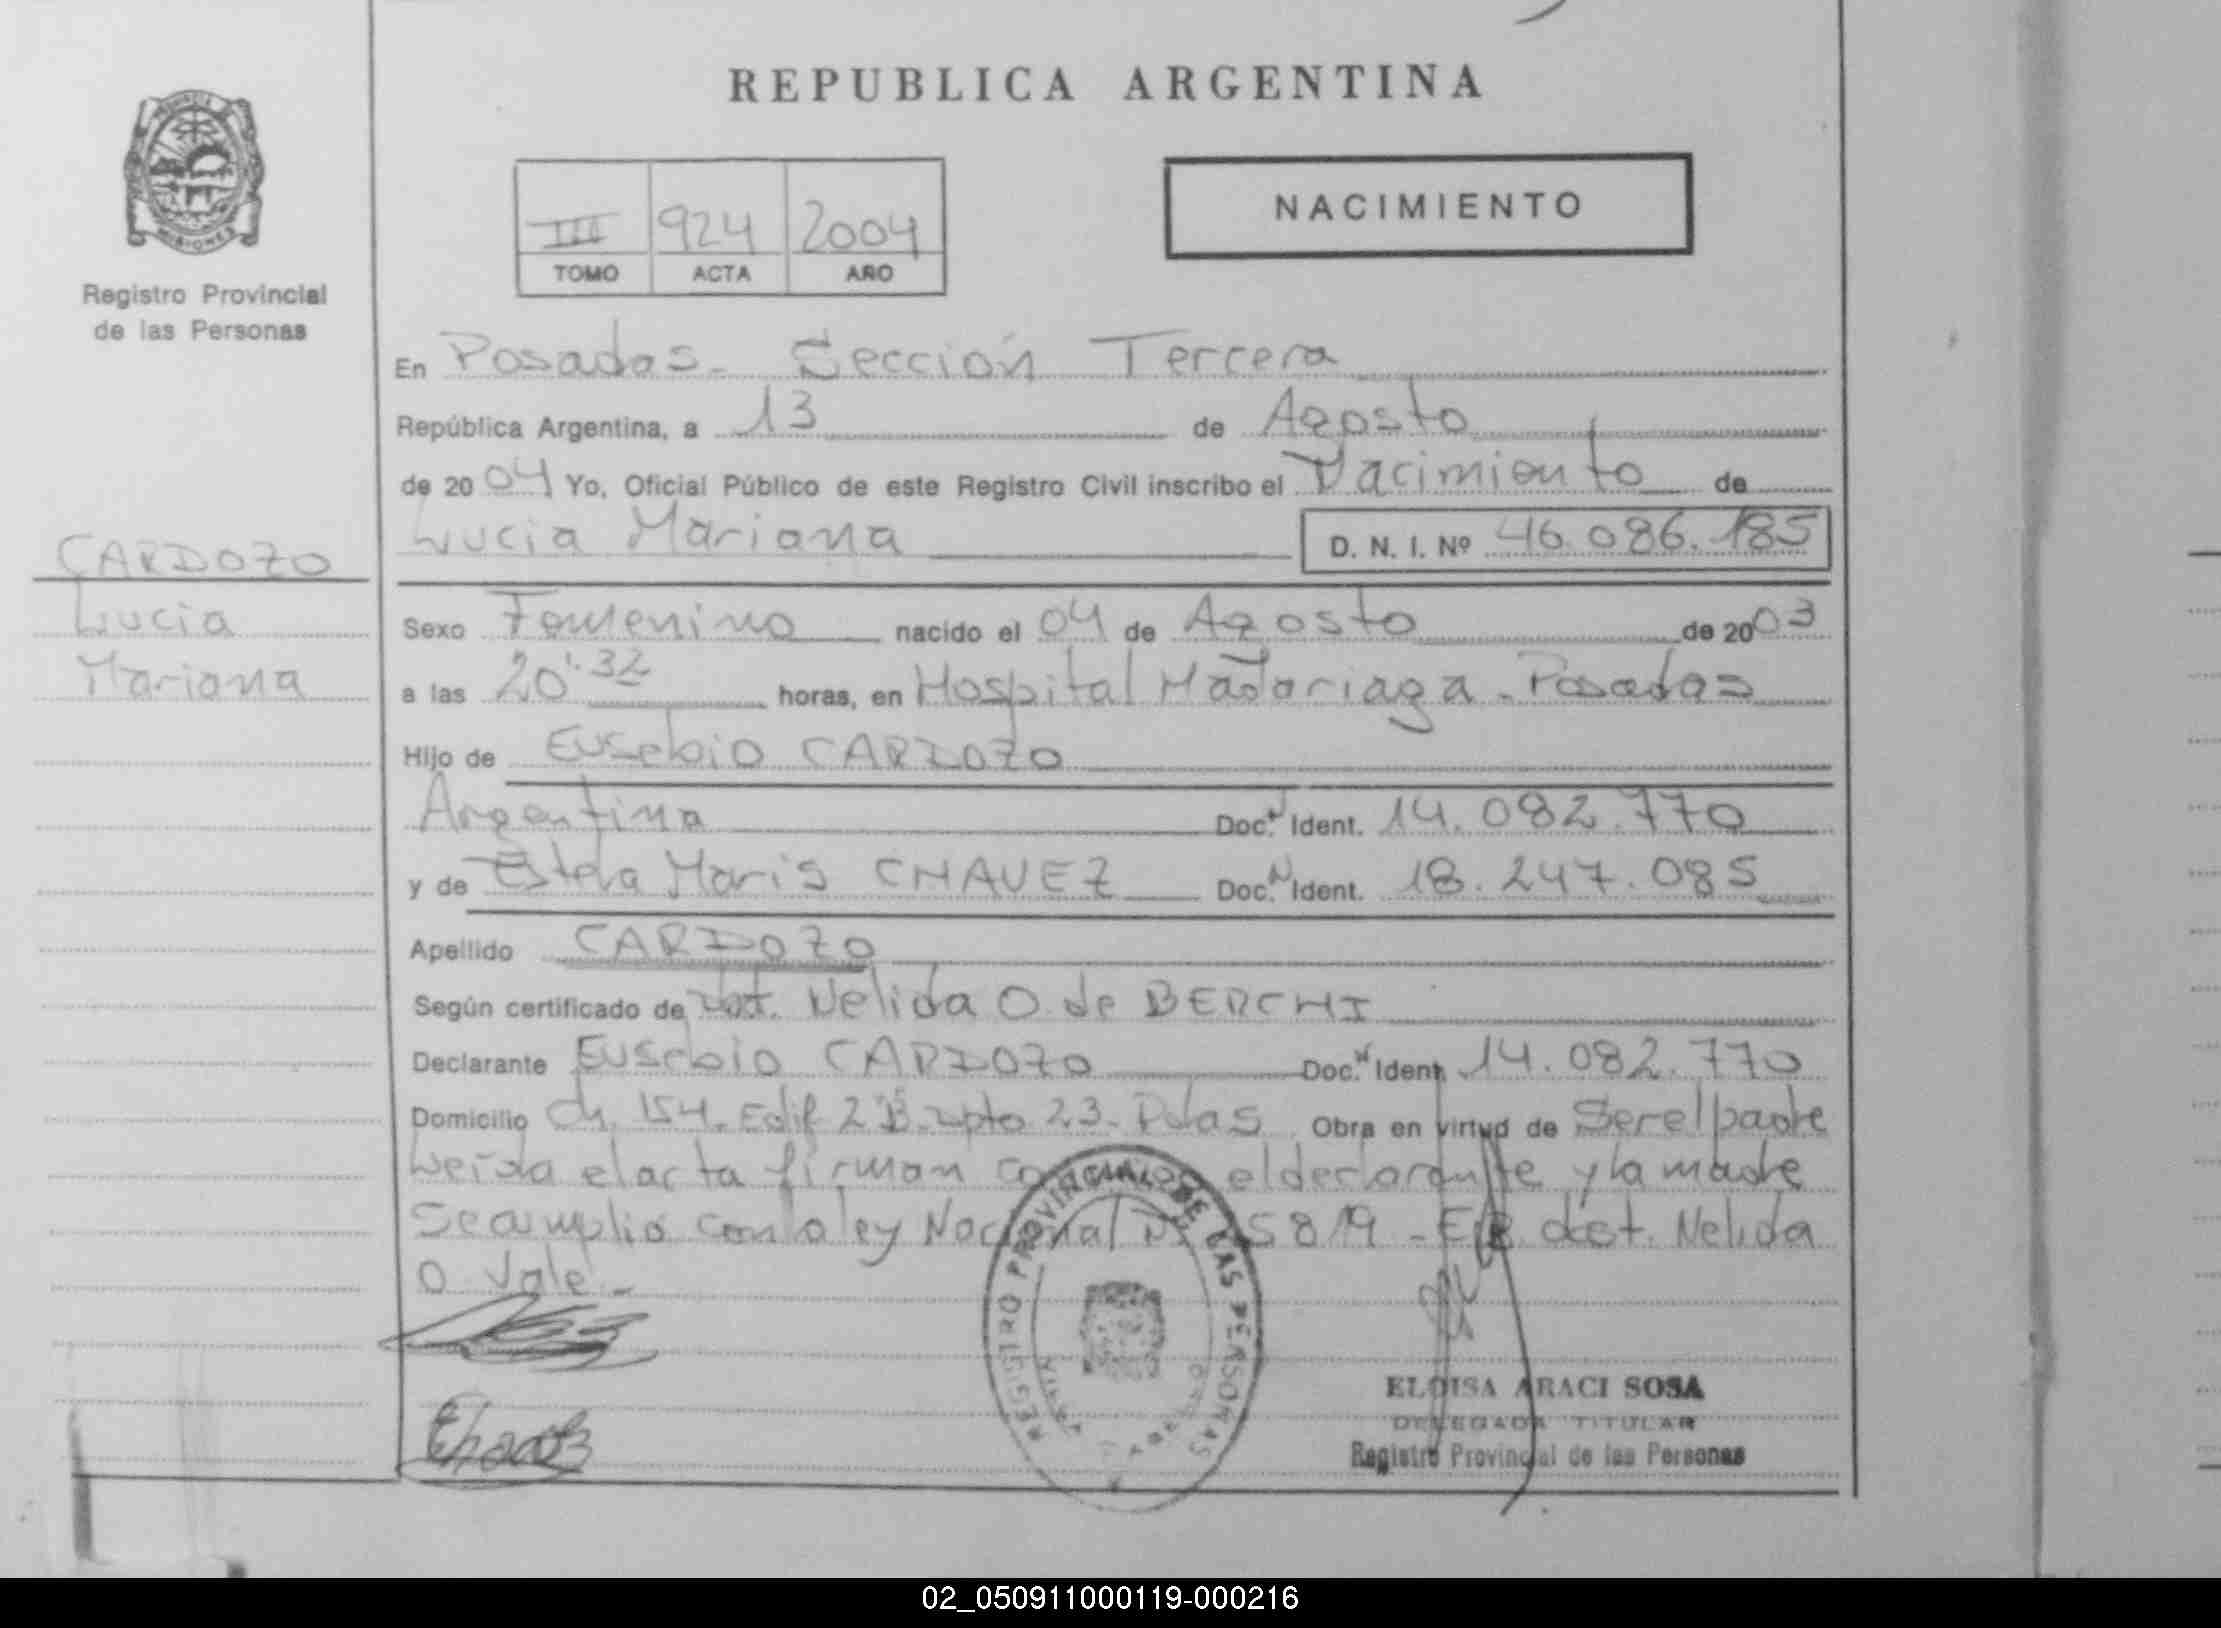 REPUBLICA ARGENTINA
MISIONES
Registro Provincial
de las Personas
III 924 2004
TOMO ACTA AÑO
NACIMIENTO
En Posadas - Sección Tercera
República Argentina, a 13 de Agosto
de 2004 Yo, Oficial Público de este Registro Civil inscribo el Nacimiento de
Lucia Mariana D. N. I. Nº 46.086.185
CARDOZO
Lucia
Mariana
Sexo Femenino nacido el 04 de Agosto de 2003
a las 20:32 horas, en Hospital Madariaga - Posadas
Hijo de Eusebio CARDOZO
Argentina Doc. N Ident. 14.082.770
y de Estela Maris CHAVEZ Doc. N Ident. 18.247.085
Apellido CARDOZO
Según certificado de Obst. Nelida O. de BERCHI
Declarante Eusebio CARDOZO Doc. N Ident. 14.082.770
Domicilio Ch. 154. Edif 2 B. Dpto 23. Pdas Obra en virtud de Ser el padre
Leida el acta firman el declarante y la madre
Se cumplió con la ley Nacional - obst. Nelida
O Vale -
REGISTRO PROVINCIAL DE LAS PERSONAS
ELOISA ARACI SOSA
DELEGADA TITULAR
Registro Provincial de las Personas
02_050911000119-000216